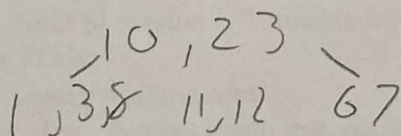 10, 23
1, 3, 8 11, 12 67